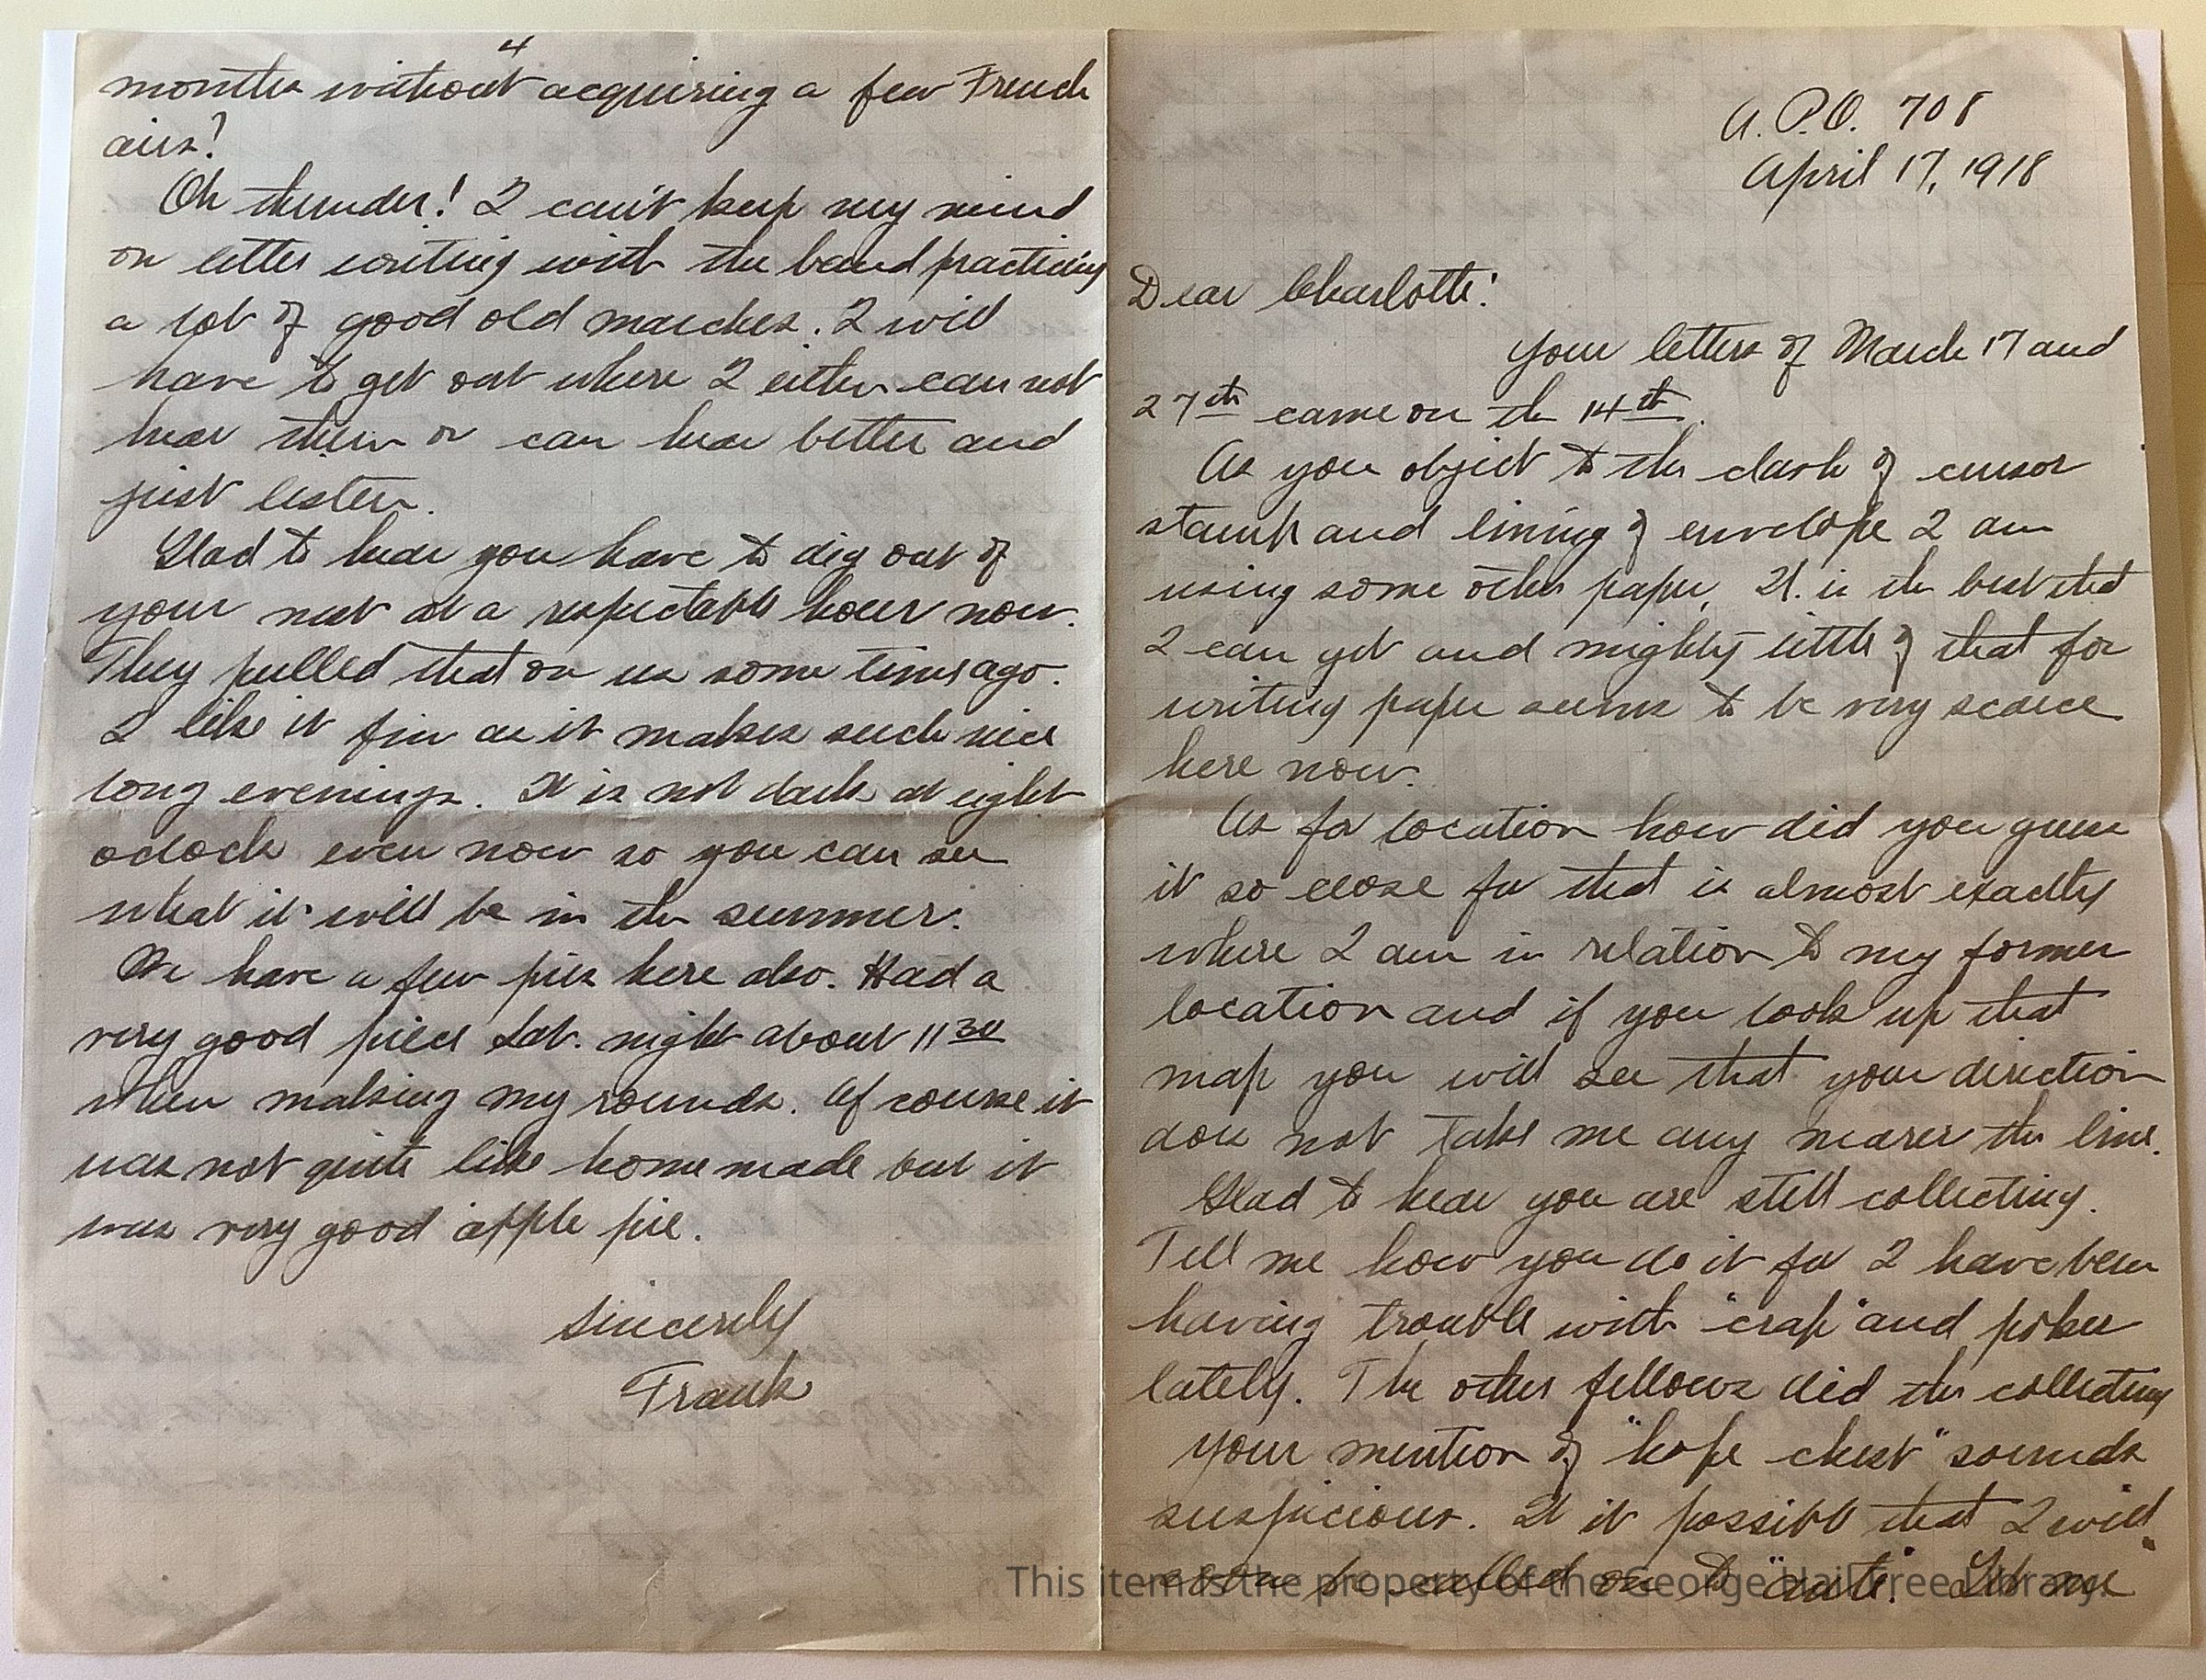 A.P.O. 708
April 17, 1918
Dear Charlotte:
Your letters of March 17 and
27th came on the 14th.
As you object to the clash of censor
stamp and lining of envelope I am
using some other paper. It is the best that
I can get and mighty little of that for
writing paper seems to be very scarce
here now.
As for location how did you guess
it so close for that is almost exactly
where I am in relation to my former
location and if you look up that
map you will see that your direction
does not take me any nearer the line.
Glad to hear you are still collecting.
Tell me how you do it for I have been
having trouble with "crap" and poker
lately. The other fellows did the collecting
Your mention of "hope chest" sounds
suspicious. Is it possible that I will
soon be called on to Let me
4
months without acquiring a few French
airs!
Oh thunder! I can't keep my mind
on letter writing with the band practicing
a lot of good old marches. I will
have to get out where I either can not
hear them or can hear better and
just listen.
Glad to hear you have to dig out of
your nest at a respectable hour now.
They pulled that on us some time ago.
I like it fine as it makes such nice
long evenings. It is not dark at eight
oclock even now so you can see
what it will be in the summer.
We have a few pies here also. Had a
very good piece Sat. night about 11 30
when making my rounds. Of course it
was not quite like home made but it
was very good apple pie.
Sincerely
Frank
This item is the property of the George Hail Free Library.